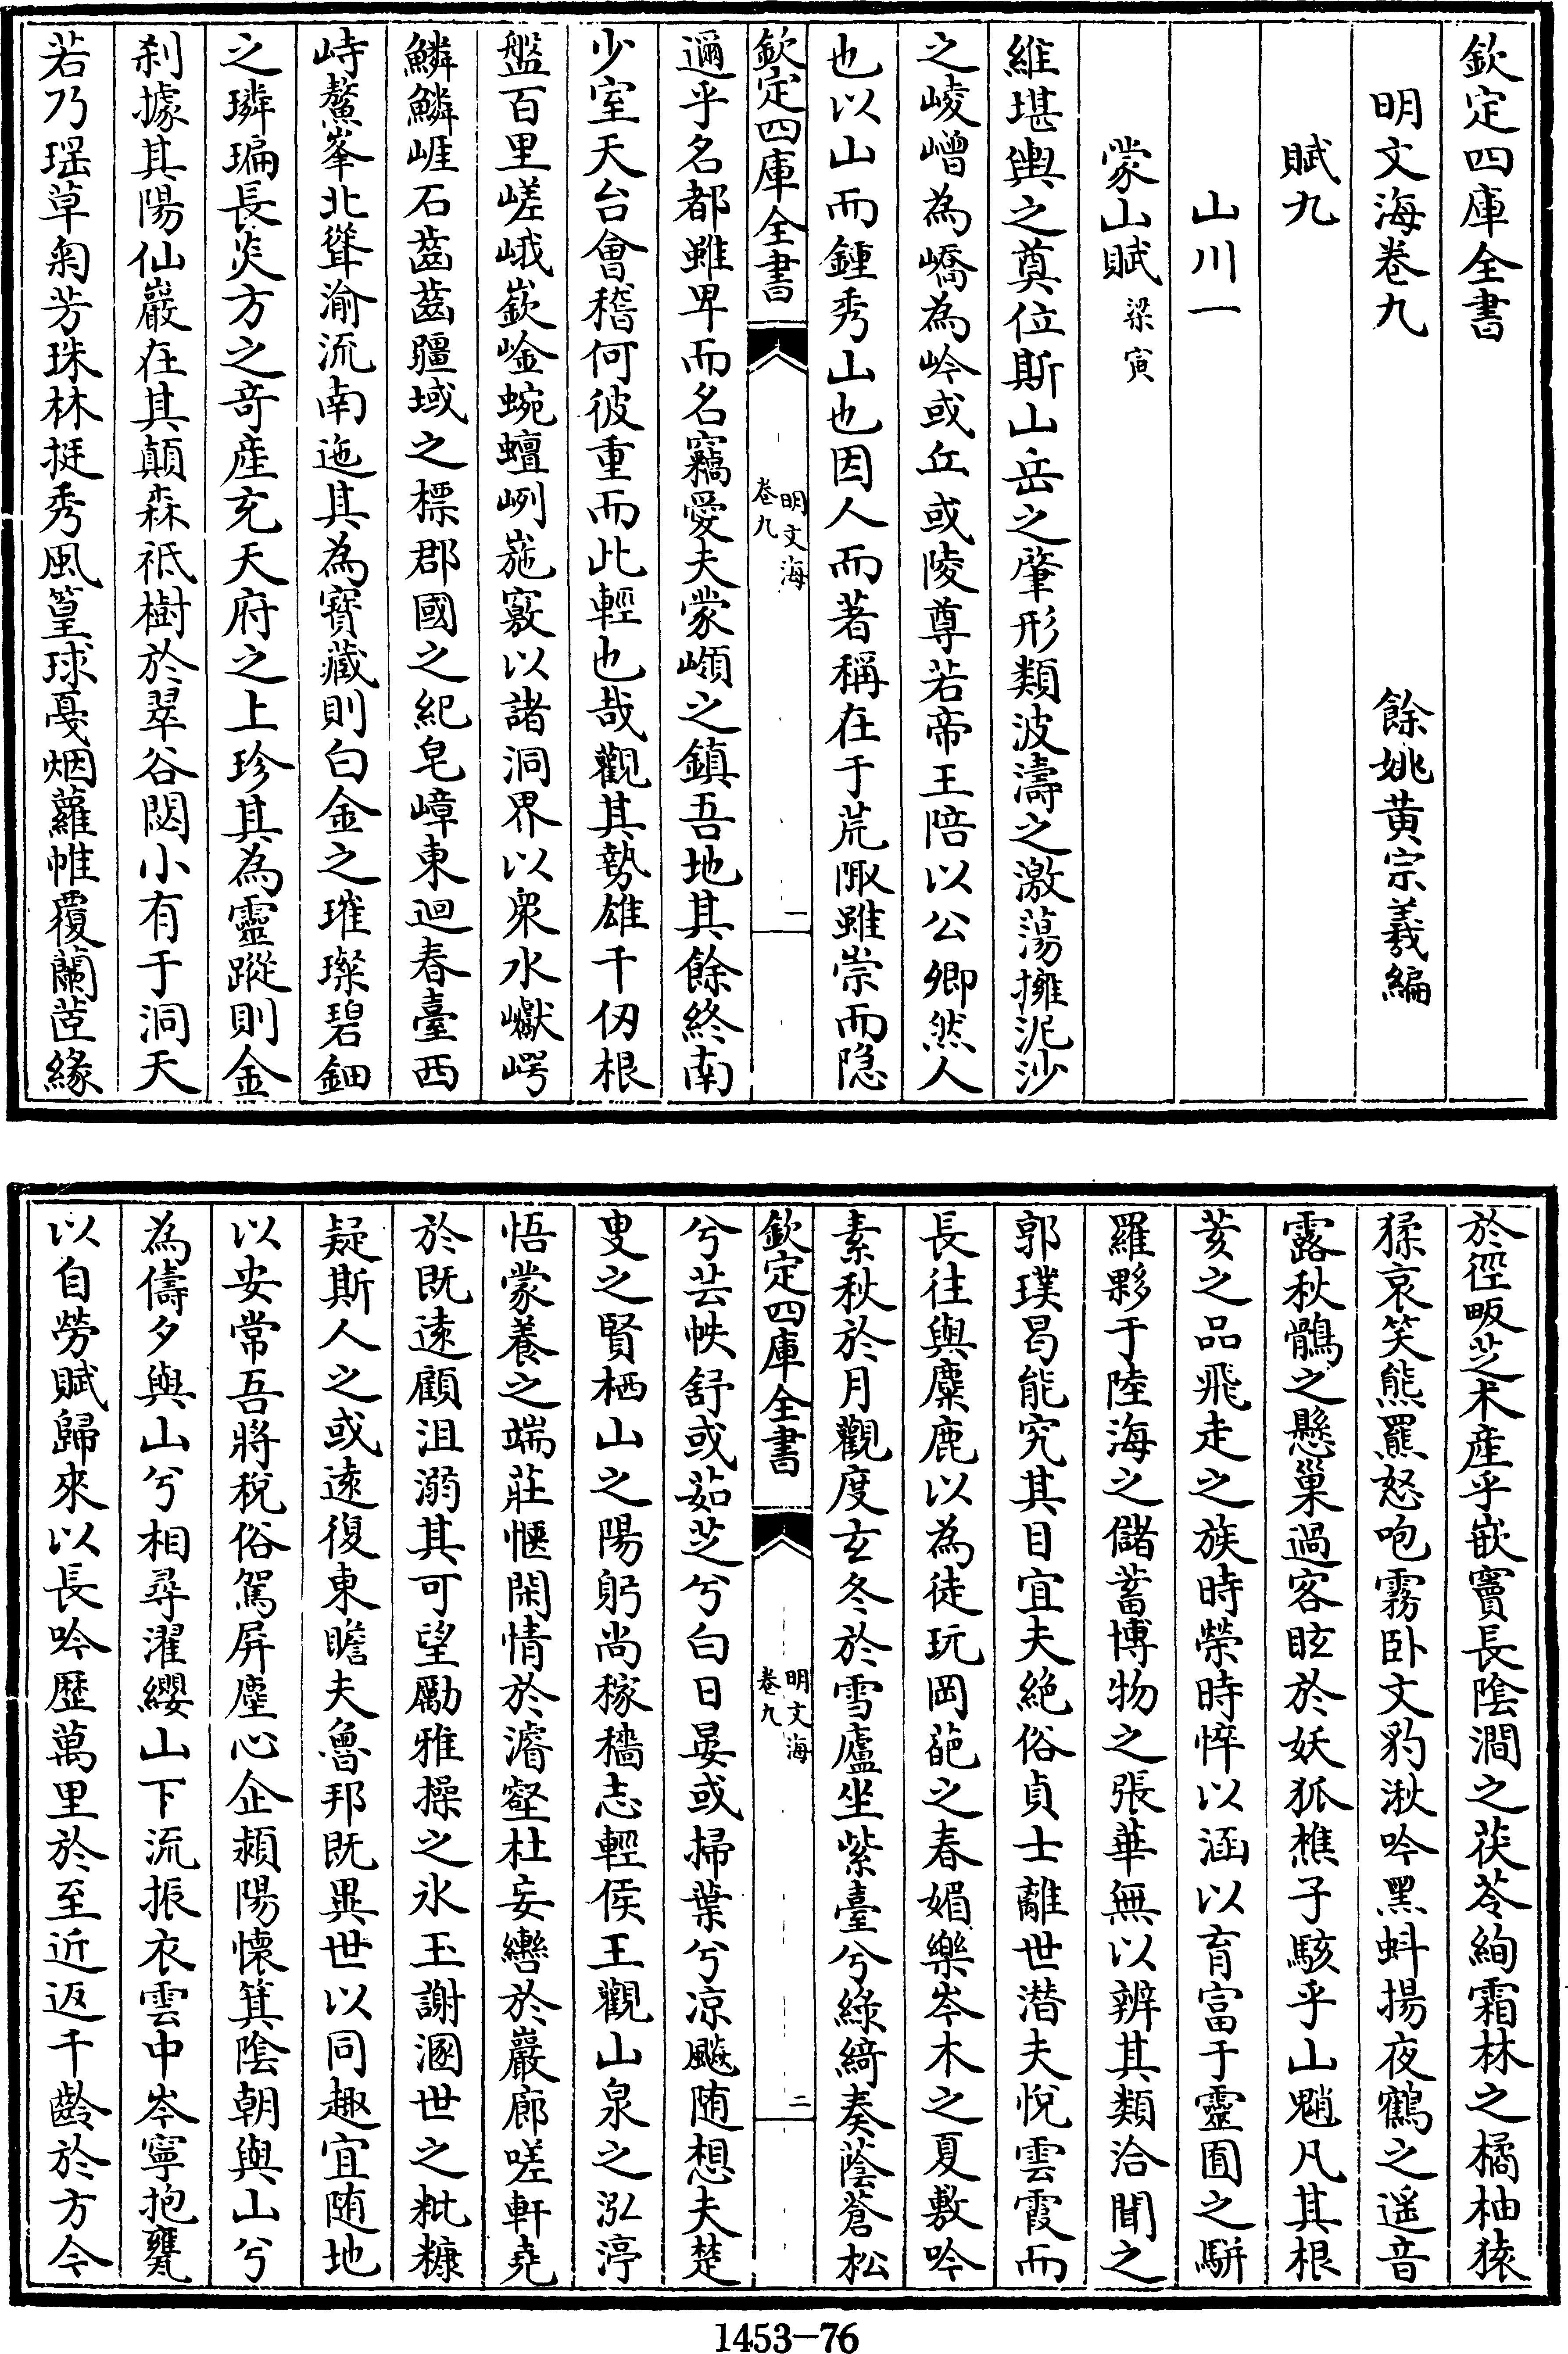 欽定四庫全書
明文海卷九
餘姚黄宗羲編
賦九
山川一
蒙山賦 梁寅
維堪輿之奠位斯山岳之肇形類波濤之激蕩擁泥沙
之崚嶒為嶠為岭或丘或陵尊若帝王陪以公卿然人
也以山而鍾秀山也因人而著稱在于荒陬雖崇而隠
欽定四庫全書
明文海
卷九
一
邇乎名都雖卑而名竊愛夫蒙巔之鎮吾地其餘終南
少室天台會稽何彼重而此輕也哉觀其勢雄千仞根
盤百里嵯峨嶔崟蜿蟺峢崺竅以諸洞界以衆水巘崿
鱗鱗崕石齒齒疆域之標郡國之紀皂嶂東迴春臺西
峙鰲峯北聳渝流南迤其為寳藏則白金之璀璨碧鈿
之璘㻞長炎方之竒産充天府之上珍其為靈蹤則金
刹據其陽仙巖在其顛森祗樹於翠谷閟小有于洞天
若乃瑶草匊芳珠林挺秀風篁球戛烟蘿帷覆蘭茝緣
於徑畈芝术産乎嵌竇長陰澗之茯苓絢霜林之橘柚猿
猱哀笑熊羆怒咆霧卧文豹湫吟黑蚪揚夜鶴之遥音
露秋鶻之懸巢過客眩於妖狐樵子駭乎山魈凡其根
荄之品飛走之族時榮時悴以涵以育富于靈囿之駢
羅夥于陸海之儲蓄博物之張華無以辨其類洽聞之
郭璞曷能究其目宜夫絶俗貞士離世潜夫悅雲霞而
長往與麋鹿以為徒玩岡葩之春媚樂岑木之夏敷吟
素秋於月觀度玄冬於雪廬坐紫臺兮綠綺奏蔭蒼松
欽定四庫全書
明文海
卷九
二
兮芸帙舒或茹芝兮白日晏或掃葉兮凉飈随想夫楚
叟之賢栖山之陽躬尚稼穡志輕侯王觀山泉之泓渟
悟蒙養之端莊惬閑情於濳壑杜妄轡於巖廊嗟軒堯
於既逺顧沮溺其可望勵雅操之氷玉謝溷世之粃糠
疑斯人之或逺復東瞻夫魯邦既異世以同趣宜随地
以安常吾將稅俗駕屏塵心企潁陽懷箕陰朝與山兮
為儔夕與山兮相尋濯纓山下流振衣雲中岑寧抱甕
以自勞賦歸來以長吟歴萬里於至近返千齡於方今
1453—76